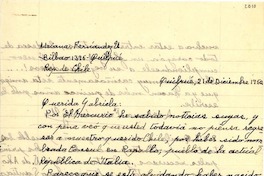 Mariana Fernández M.
Bilbao 1395 - Quilpué
Rep. de Chile
Quilpué, 21 de Diciembre 195
Querida Gabriela:
Por El Mercurio he sabido noticias suyas, y
con pena veo que usted todavía no piensa regre-
sar a nuestro querido Chile; por haber sido nom-
brada Consul en Rapallo, pueblo de la actual
República de Italia.
Parece que se está olvidando